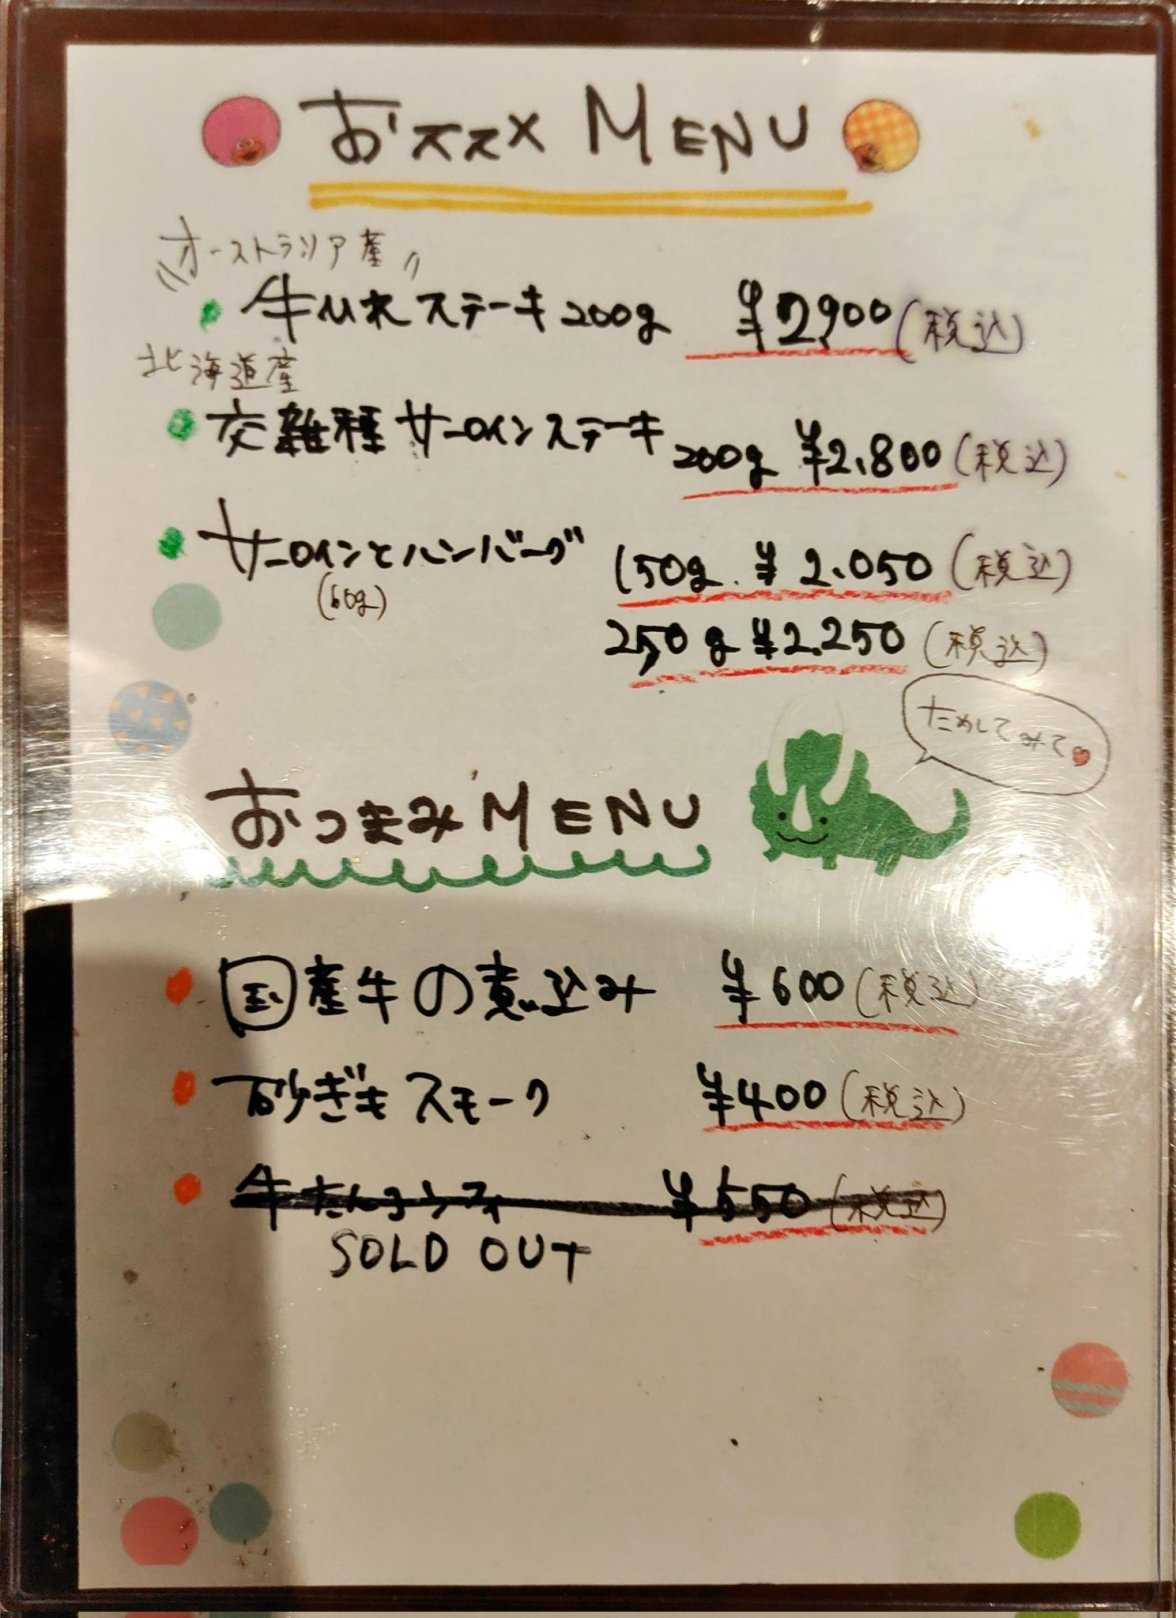 おススメ MENU
オーストラリア産
牛ひれステーキ200g ¥2,900(税込)
北海道産
交雑種サーロインステーキ 200g ¥2,800(税込)
サーロインとハンバーグ 150g ¥2,050(税込)
(60g)
250g ¥2,250(税込)
ためしてみて
おつまみMENU
国産牛の煮込み ¥600(税込)
砂ぎもスモーク ¥400(税込)
牛たん ¥550(税込)
SOLD OUT